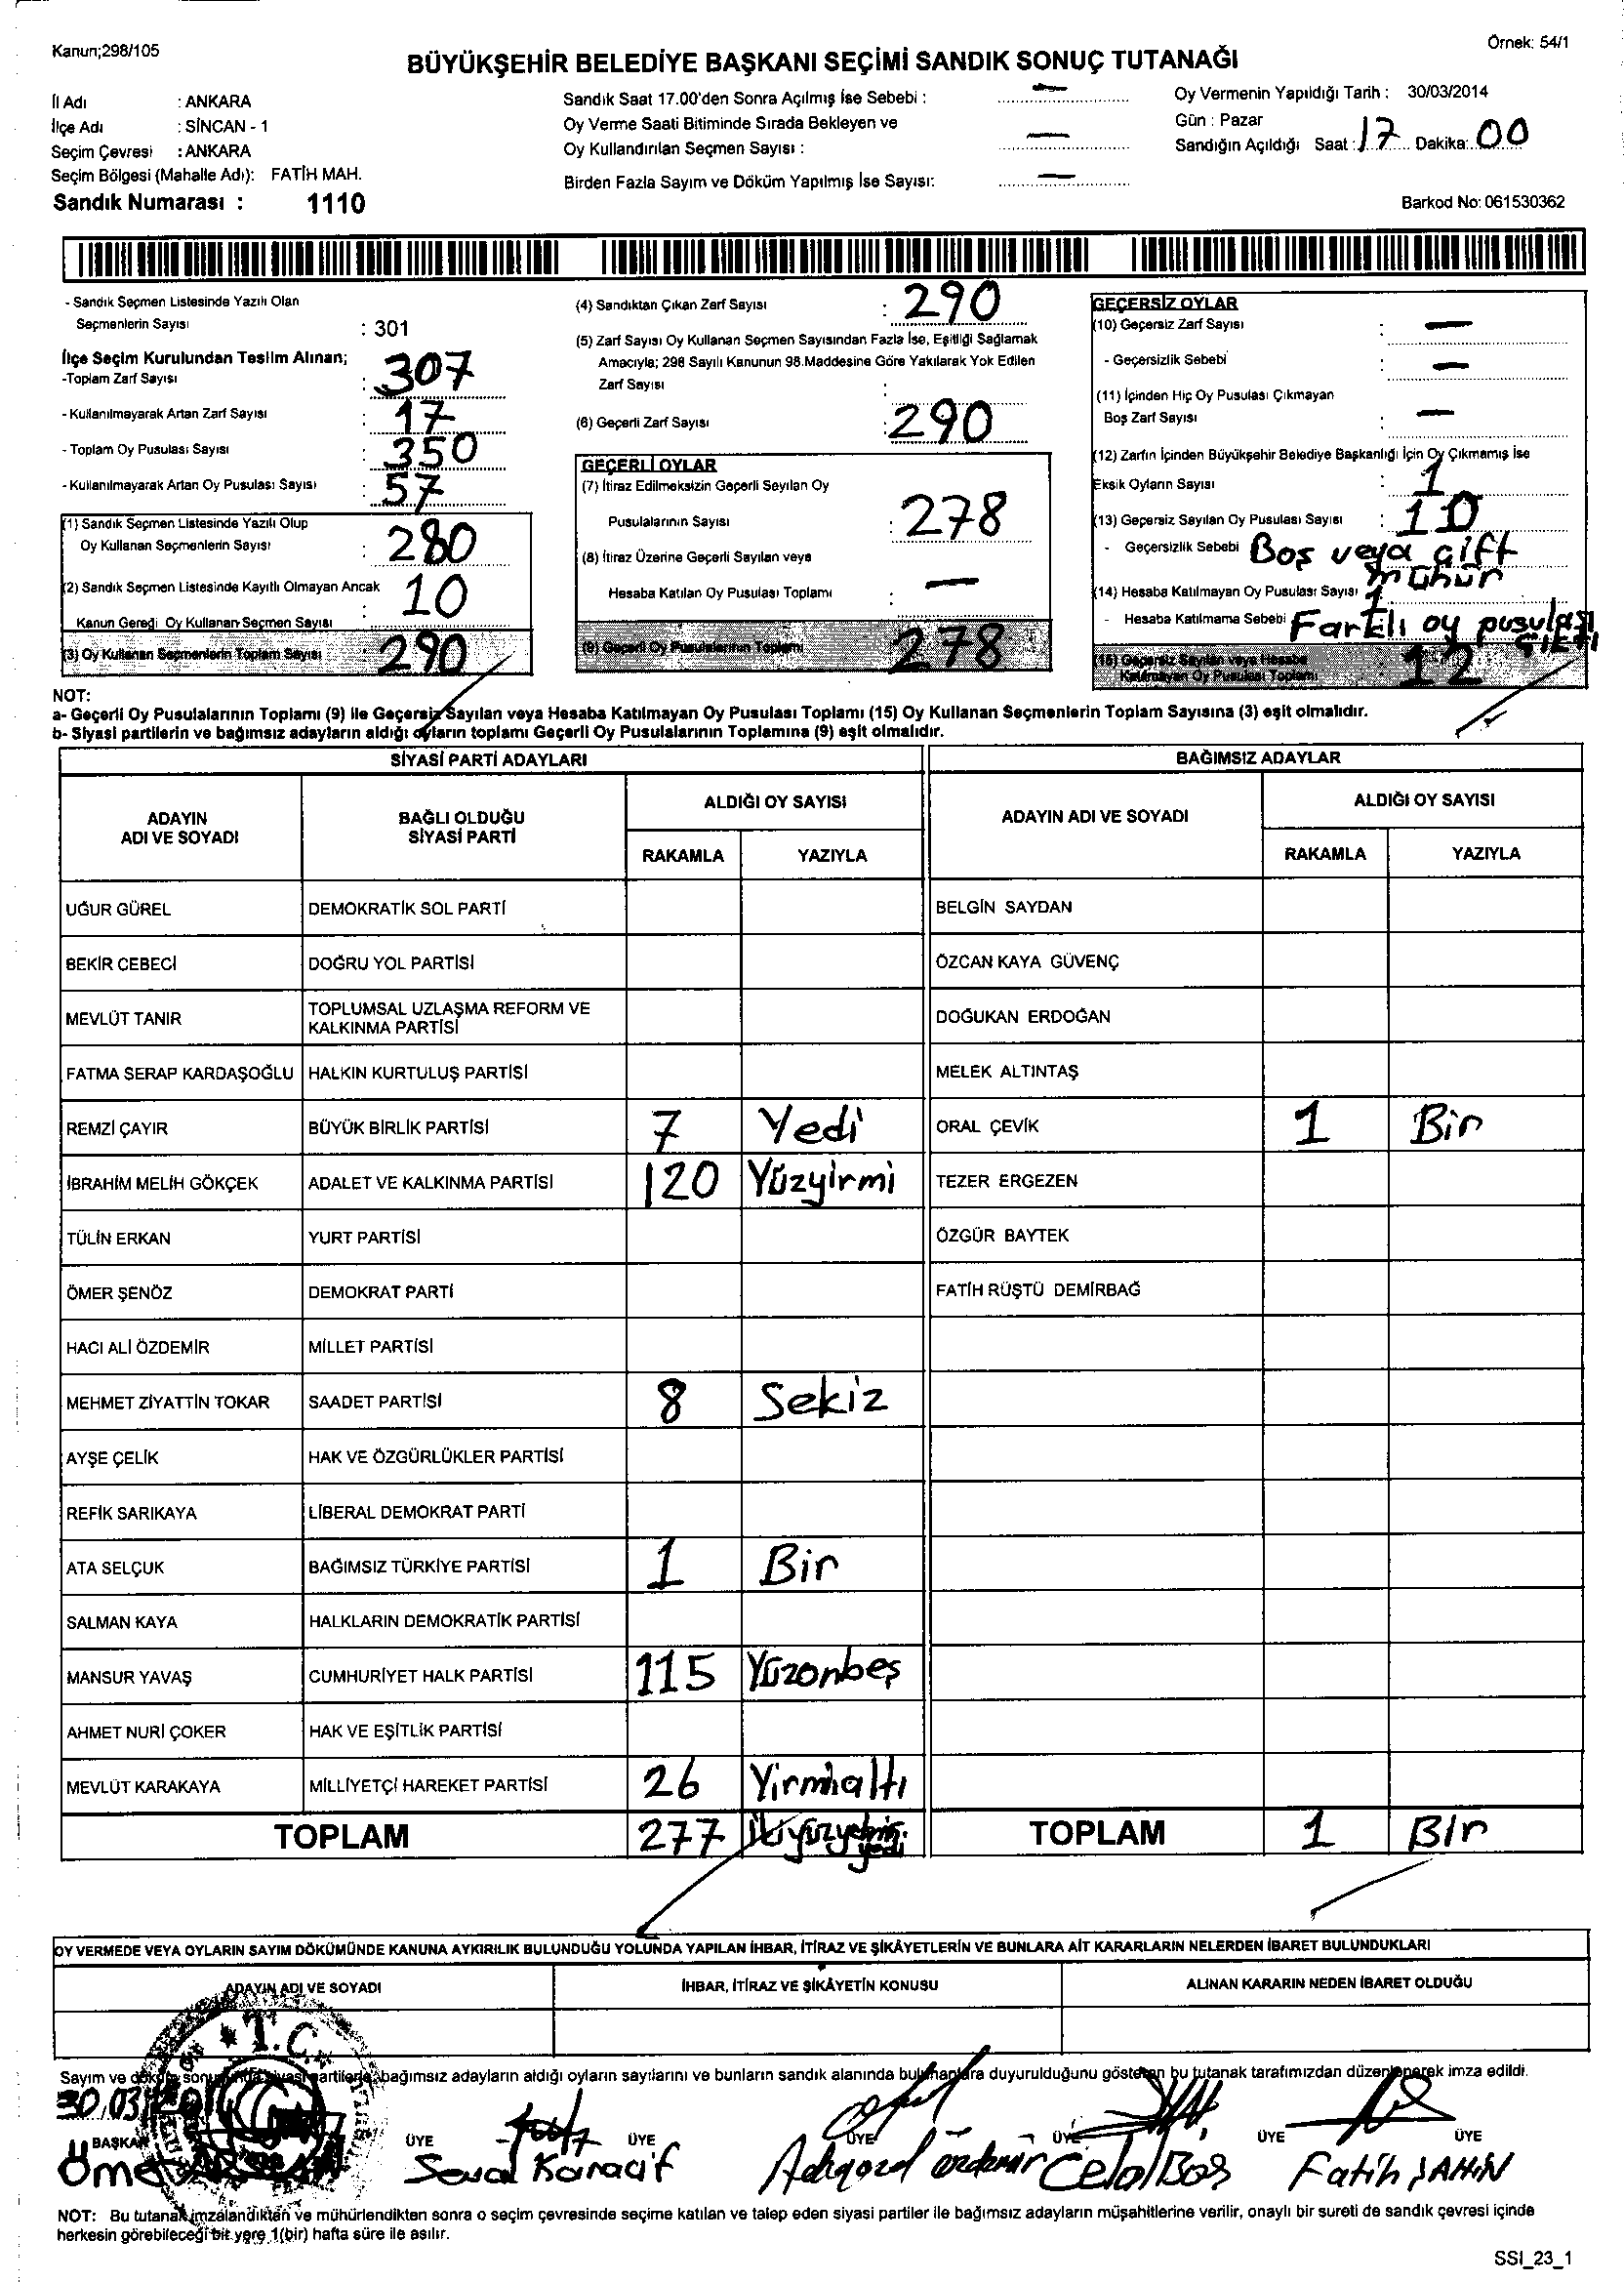 Kanun;298/105
Örnek: 54/1
BÜYÜKŞEHİR BELEDİYE BAŞKANI SEÇİMİ SANDIK SONUÇ TUTANAĞI
İl Adı : ANKARA
İlçe Adı : SİNCAN - 1
Seçim Çevresi : ANKARA
Seçim Bölgesi (Mahalle Adı): FATİH MAH.
Sandık Numarası : 1110
Sandık Saat 17.00'den Sonra Açılmış İse Sebebi : —
Oy Verme Saati Bitiminde Sırada Bekleyen ve
Oy Kullandırılan Seçmen Sayısı : —
Birden Fazla Sayım ve Döküm Yapılmış İse Sayısı: —
Oy Vermenin Yapıldığı Tarih : 30/03/2014
Gün : Pazar
Sandığın Açıldığı Saat : 17 Dakika: 00
Barkod No: 061530362
- Sandık Seçmen Listesinde Yazılı Olan
Seçmenlerin Sayısı : 301
İlçe Seçim Kurulundan Teslim Alınan;
-Toplam Zarf Sayısı : 307
- Kullanılmayarak Artan Zarf Sayısı : 17
- Toplam Oy Pusulası Sayısı : 350
- Kullanılmayarak Artan Oy Pusulası Sayısı : 57
(1) Sandık Seçmen Listesinde Yazılı Olup
Oy Kullanan Seçmenlerin Sayısı : 280
(2) Sandık Seçmen Listesinde Kayıtlı Olmayan Ancak
Kanun Gereği Oy Kullanan Seçmen Sayısı : 10
(3) Oy Kullanan Seçmenlerin Toplam Sayısı : 290
(4) Sandıktan Çıkan Zarf Sayısı : 290
(5) Zarf Sayısı Oy Kullanan Seçmen Sayısından Fazla İse, Eşitliği Sağlamak
Amacıyla; 298 Sayılı Kanunun 98.Maddesine Göre Yakılarak Yok Edilen
Zarf Sayısı :
(6) Geçerli Zarf Sayısı : 290
GEÇERLİ OYLAR
(7) İtiraz Edilmeksizin Geçerli Sayılan Oy
Pusulalarının Sayısı : 278
(8) İtiraz Üzerine Geçerli Sayılan veya
Hesaba Katılan Oy Pusulası Toplamı : —
(9) Geçerli Oy Pusulalarının Toplamı 278
GEÇERSİZ OYLAR
(10) Geçersiz Zarf Sayısı : —
- Geçersizlik Sebebi : —
(11) İçinden Hiç Oy Pusulası Çıkmayan
Boş Zarf Sayısı : —
(12) Zarfın İçinden Büyükşehir Belediye Başkanlığı İçin Oy Çıkmamış İse
Eksik Oyların Sayısı : 1
(13) Geçersiz Sayılan Oy Pusulası Sayısı : 10
- Geçersizlik Sebebi Boş veya çift
mühür
(14) Hesaba Katılmayan Oy Pusulası Sayısı 1
- Hesaba Katılmama Sebebi Farklı oy pusulası
ÇIKTI
(15) Geçersiz Sayılan veya Hesaba
Katılmayan Oy Pusulası Toplamı 12
NOT:
a- Geçerli Oy Pusulalarının Toplamı (9) ile Geçersiz Sayılan veya Hesaba Katılmayan Oy Pusulası Toplamı (15) Oy Kullanan Seçmenlerin Toplam Sayısına (3) eşit olmalıdır.
b- Siyasi partilerin ve bağımsız adayların aldığı oyların toplamı Geçerli Oy Pusulalarının Toplamına (9) eşit olmalıdır.
SİYASİ PARTİ ADAYLARI BAĞIMSIZ ADAYLAR
ADAYIN
ADI VE SOYADI
BAĞLI OLDUĞU
SİYASİ PARTİ
ALDIĞI OY SAYISI
RAKAMLA YAZIYLA
ADAYIN ADI VE SOYADI
ALDIĞI OY SAYISI
RAKAMLA YAZIYLA
UĞUR GÜREL DEMOKRATİK SOL PARTİ BELGİN SAYDAN
BEKİR CEBECİ DOĞRU YOL PARTİSİ ÖZCAN KAYA GÜVENÇ
MEVLÜT TANIR TOPLUMSAL UZLAŞMA REFORM VE
KALKINMA PARTİSİ DOĞUKAN ERDOĞAN
FATMA SERAP KARDAŞOĞLU HALKIN KURTULUŞ PARTİSİ MELEK ALTINTAŞ
REMZİ ÇAYIR BÜYÜK BİRLİK PARTİSİ 7 Yedi ORAL ÇEVİK 1 Bir
İBRAHİM MELİH GÖKÇEK ADALET VE KALKINMA PARTİSİ 120 Yüzyirmi TEZER ERGEZEN
TÜLİN ERKAN YURT PARTİSİ ÖZGÜR BAYTEK
ÖMER ŞENÖZ DEMOKRAT PARTİ FATİH RÜŞTÜ DEMİRBAĞ
HACI ALİ ÖZDEMİR MİLLET PARTİSİ
MEHMET ZİYATTİN TOKAR SAADET PARTİSİ 8 Sekiz
AYŞE ÇELİK HAK VE ÖZGÜRLÜKLER PARTİSİ
REFİK SARIKAYA LİBERAL DEMOKRAT PARTİ
ATA SELÇUK BAĞIMSIZ TÜRKİYE PARTİSİ 1 Bir
SALMAN KAYA HALKLARIN DEMOKRATİK PARTİSİ
MANSUR YAVAŞ CUMHURİYET HALK PARTİSİ 115 Yüzonbeş
AHMET NURİ ÇOKER HAK VE EŞİTLİK PARTİSİ
MEVLÜT KARAKAYA MİLLİYETÇİ HAREKET PARTİSİ 26 Yirmialtı
TOPLAM 277 TOPLAM 1 Bir
OY VERMEDE VEYA OYLARIN SAYIM DÖKÜMÜNDE KANUNA AYKIRILIK BULUNDUĞU YOLUNDA YAPILAN İHBAR, İTİRAZ VE ŞİKÂYETLERİN VE BUNLARA AİT KARARLARIN NELERDEN İBARET BULUNDUKLARI
ADAYIN ADI VE SOYADI İHBAR, İTİRAZ VE ŞİKÂYETİN KONUSU ALINAN KARARIN NEDEN İBARET OLDUĞU
T.C.
Sayım ve döküm sonucunda siyasi partilerle, bağımsız adayların aldığı oyların sayılarını ve bunların sandık alanında bulunanlara duyurulduğunu gösteren bu tutanak tarafımızdan düzenlenerek imza edildi.
30.03.2014
BAŞKAN ÜYE ÜYE ÜYE ÜYE ÜYE ÜYE
Ömer Celal Baş Fatih ŞAHİN
NOT: Bu tutanak imzalandıktan ve mühürlendikten sonra o seçim çevresinde seçime katılan ve talep eden siyasi partiler ile bağımsız adayların müşahitlerine verilir, onaylı bir sureti de sandık çevresi içinde
herkesin görebileceği bir yere 1(bir) hafta süre ile asılır.
SSI_23_1